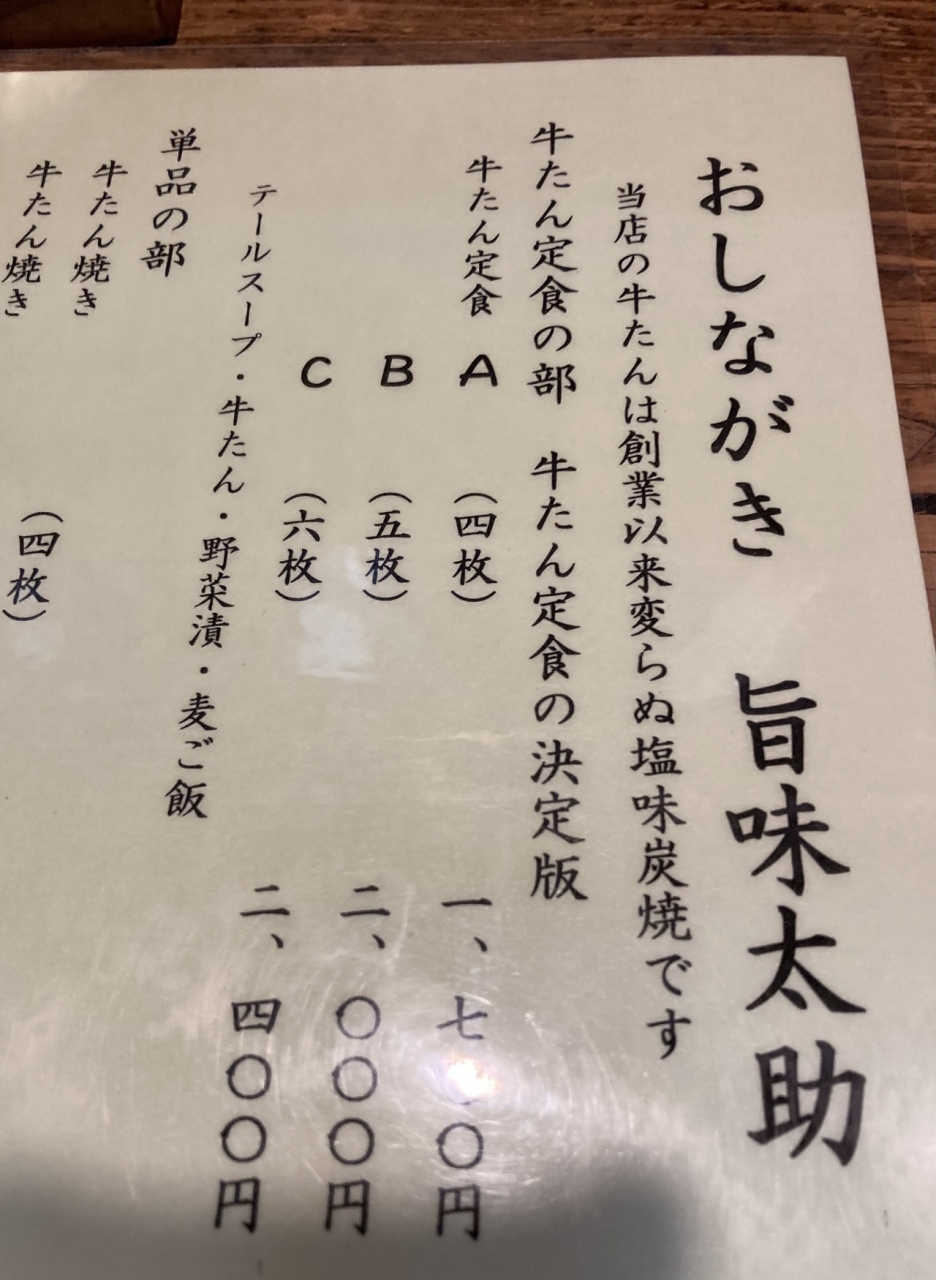 おしながき 旨味太助
当店の牛たんは創業以来変らぬ塩味炭焼です
牛たん定食の部 牛たん定食の決定版
牛たん定食 A (四枚) 一、七 〇円
B (五枚) 二、〇〇〇円
C (六枚) 二、四〇〇円
テールスープ・牛たん・野菜漬・麦ご飯
単品の部
牛たん焼き
牛たん焼き (四枚)